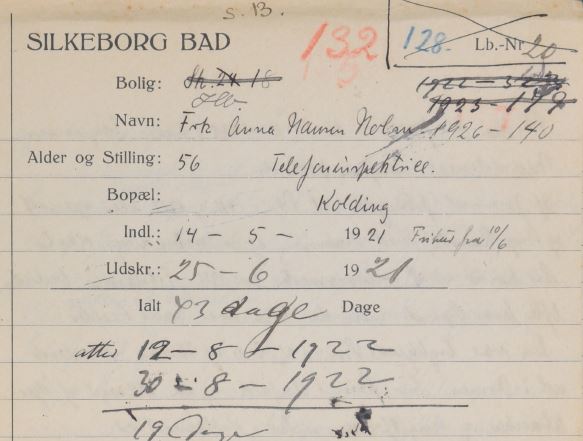 S. B.
132 128. Lb.-Nr 20
SILKEBORG BAD
Bolig: St. 24 18 1922 - 
1923 - 177
Navn: Frk Anna Hansen Holm 1926 - 140
Alder og Stilling: 56 Telefoninspektrice.
Bopæl: Kolding
Indl.: 14 - 5 - 1921 Fritid fra 10/6
Udskr.: 25 - 6 1921
Ialt 43 dage Dage
atter 12 - 8 - 1922
30 - 8 - 1922
19 Dage